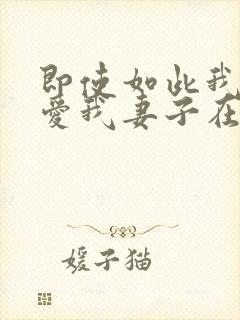 即使如此我
爱我妻子在
媛子猫